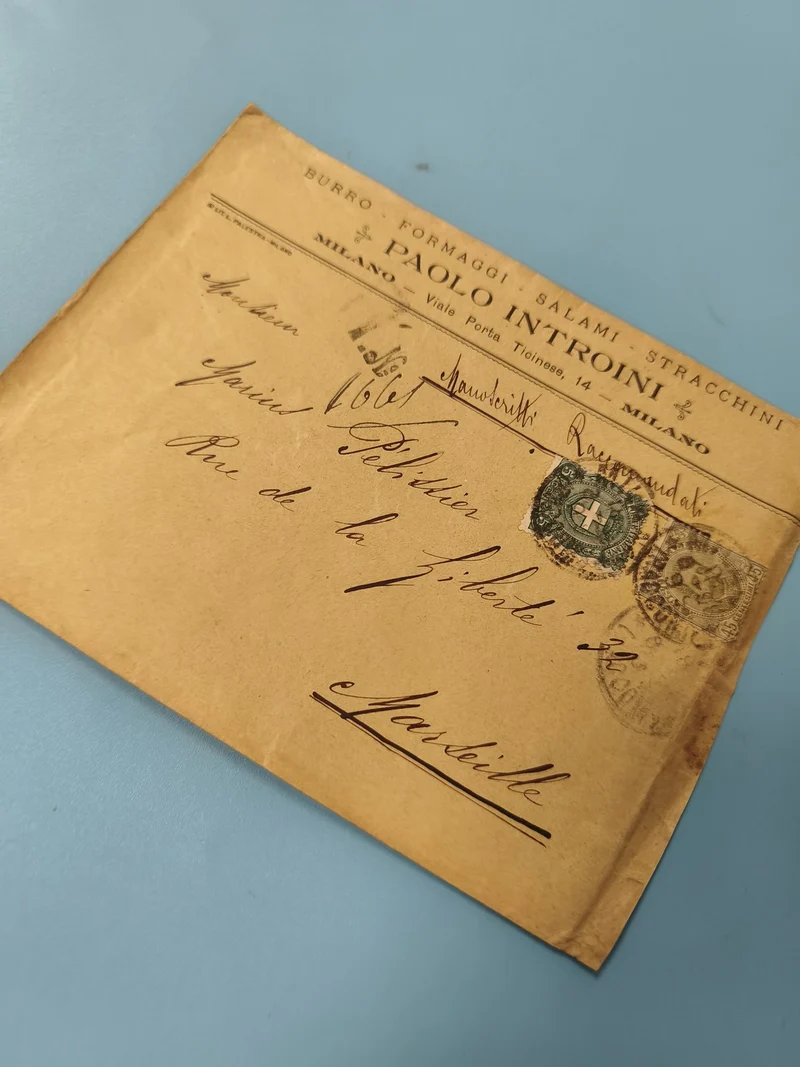 BURRO - FORMAGGI - SALAMI - STRACCHINI
PAOLO INTROINI
MILANO — Viale Porta Ticinese, 14 — MILANO
Manoscritti Raccomandati
Monsieur
1661
Marius Pélissier
Rue de la Liberté 32
Marseille
5
45